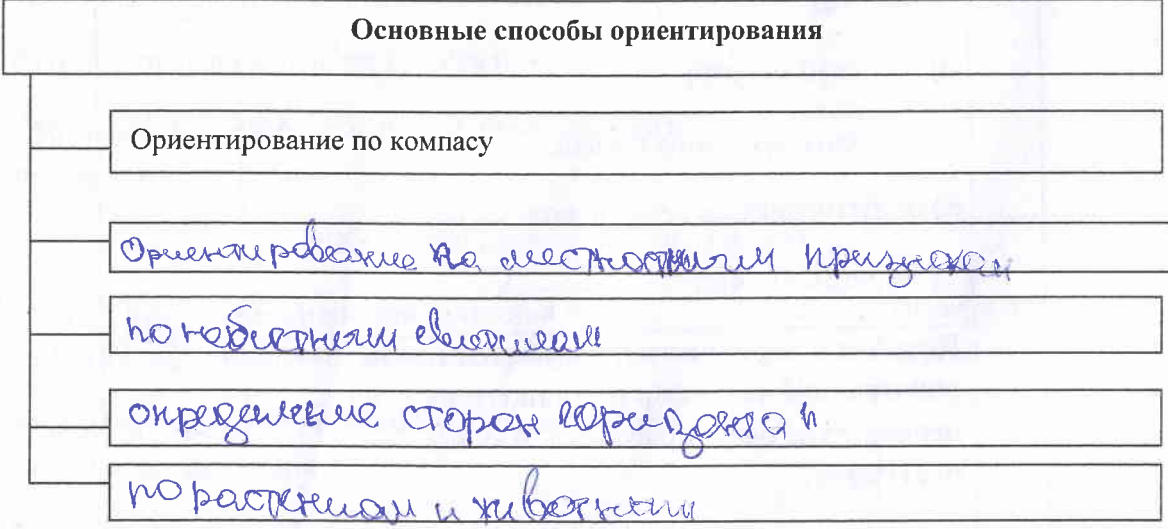 Основные способы ориентирования
Ориентирование по компасу
Ориентирование по местным признакам
по небесным светилам
определение сторон горизонта
по растениям и животным